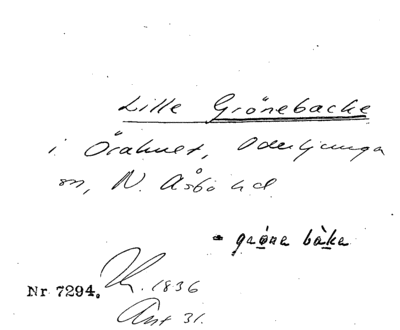 Lille Grönebacke
i Örahult, Oderljunga
sn, N. Åsbo hd
- gröna bàka
Nr 7294. 1836
Ant 31.